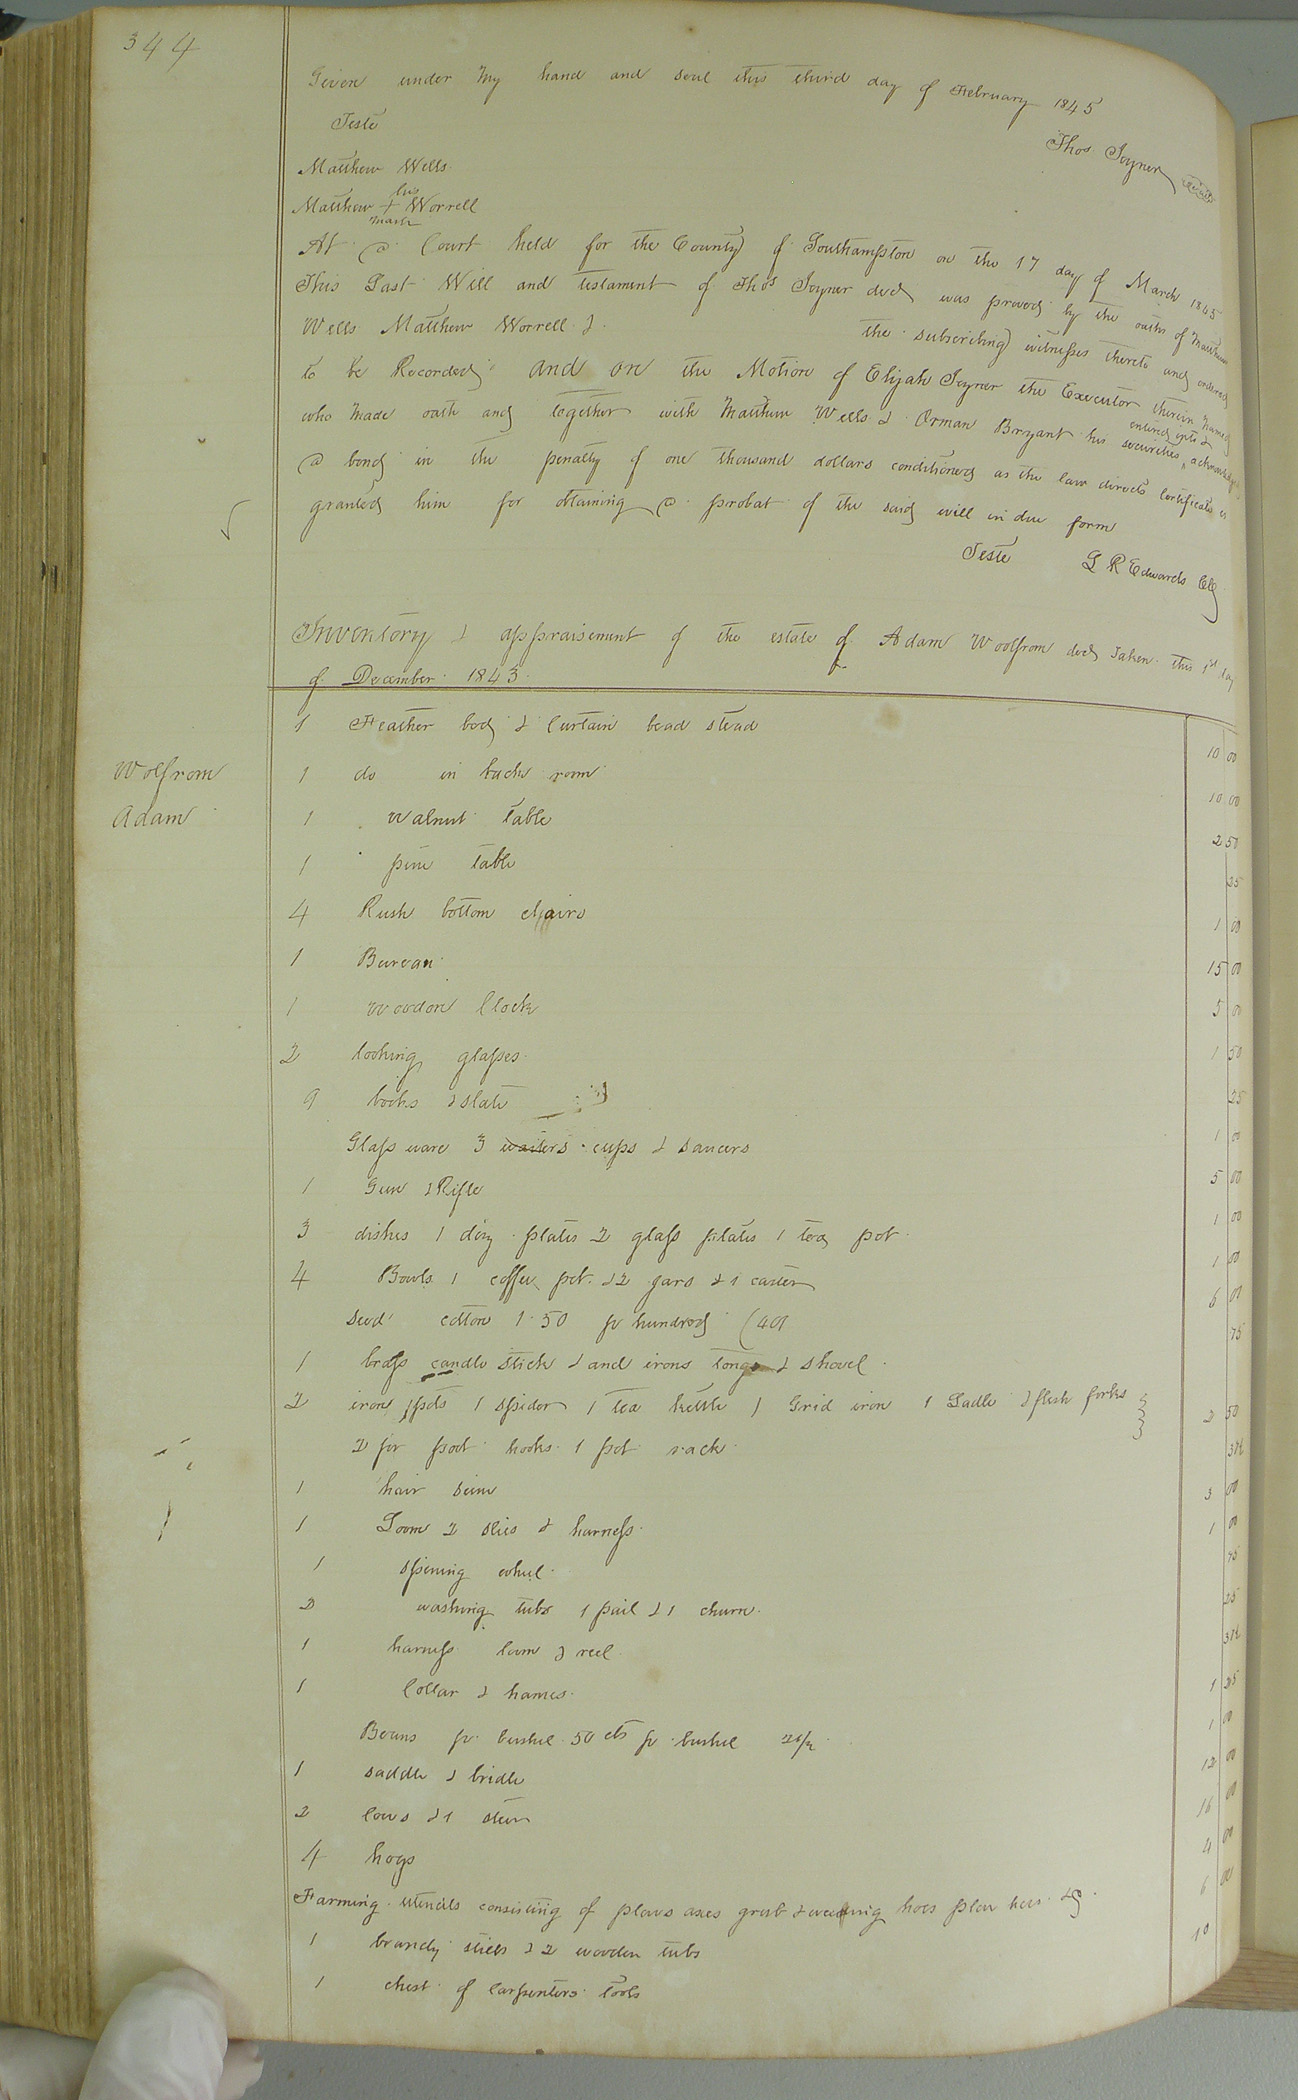 344
Given under my hand and seal this third day of February 1845
Teste
Thos Joyner seal
Matthew Wells
his
Matthew + Worrell
mark
At a Court held for the County of Southampton on the 17 day of March 1845
This Last Will and testament of Thos Joyner decd was proved by the oaths of Matthew
Wells Matthew Worrell & the subscribing witnesses thereto and ordered
to be Recorded and on the Motion of Elijah Joyner the Executor therein named
who made oath and together with Matthew Wells & Orman Bryant his securities entered into & acknowledged
a bond in the penalty of one thousand dollars conditioned as the law directs Certificate is
granted him for obtaining a probat of the said will in due form
Teste L R Edwards Clk
Inventory & appraisement of the estate of Adam Woolfrom decd Taken this 1st day
of December 1843
Wolfrom
Adam
1 Feather bed & Curtain bead stead 10 00
1 do in back room 10 00
1 walnut table 2 50
1 pine table 25
4 Rush bottom chairs 1 00
1 Bureau 15 00
1 woodon Clock 5 00
2 looking glasses 1 50
9 books & slate 25
Glass ware 3 waiters cups & saucers 1 00
1 Gun & Rifle 5 00
3 dishes 1 doz plates 2 glass plates 1 tea pot 1 00
4 Bowls 1 coffee pot & 2 jars & 1 caster 1 00
Seed cotton 1.50 pr hundred (401 6 00
1 brass candle stick & and irons tongs & shovel 75
2 iron pots 1 spider 1 tea kettle 1 Grid iron 1 Ladle & flesh forks
2 pr poot hooks 1 pot rack 2 50
1 hair seive 37½
1 Loom 2 slies & harness 3 00
1 spining wheel 1 00
2 washing tubs 1 pail & 1 churn 75
1 harness loom & reel 25
1 Collar & hames 37½
Beans pr bushel 50 cts pr bushel 2½ 1 25
1 saddle & bridle 1 00
2 cows & 1 steer 12 00
4 hogs 16 00
Farming utencils consisting of plows axes grub & weeding hoes plow hoes &c 4 00
1 brandy still & 2 wooden tubs 6 00
1 chest of carpenters tools 10